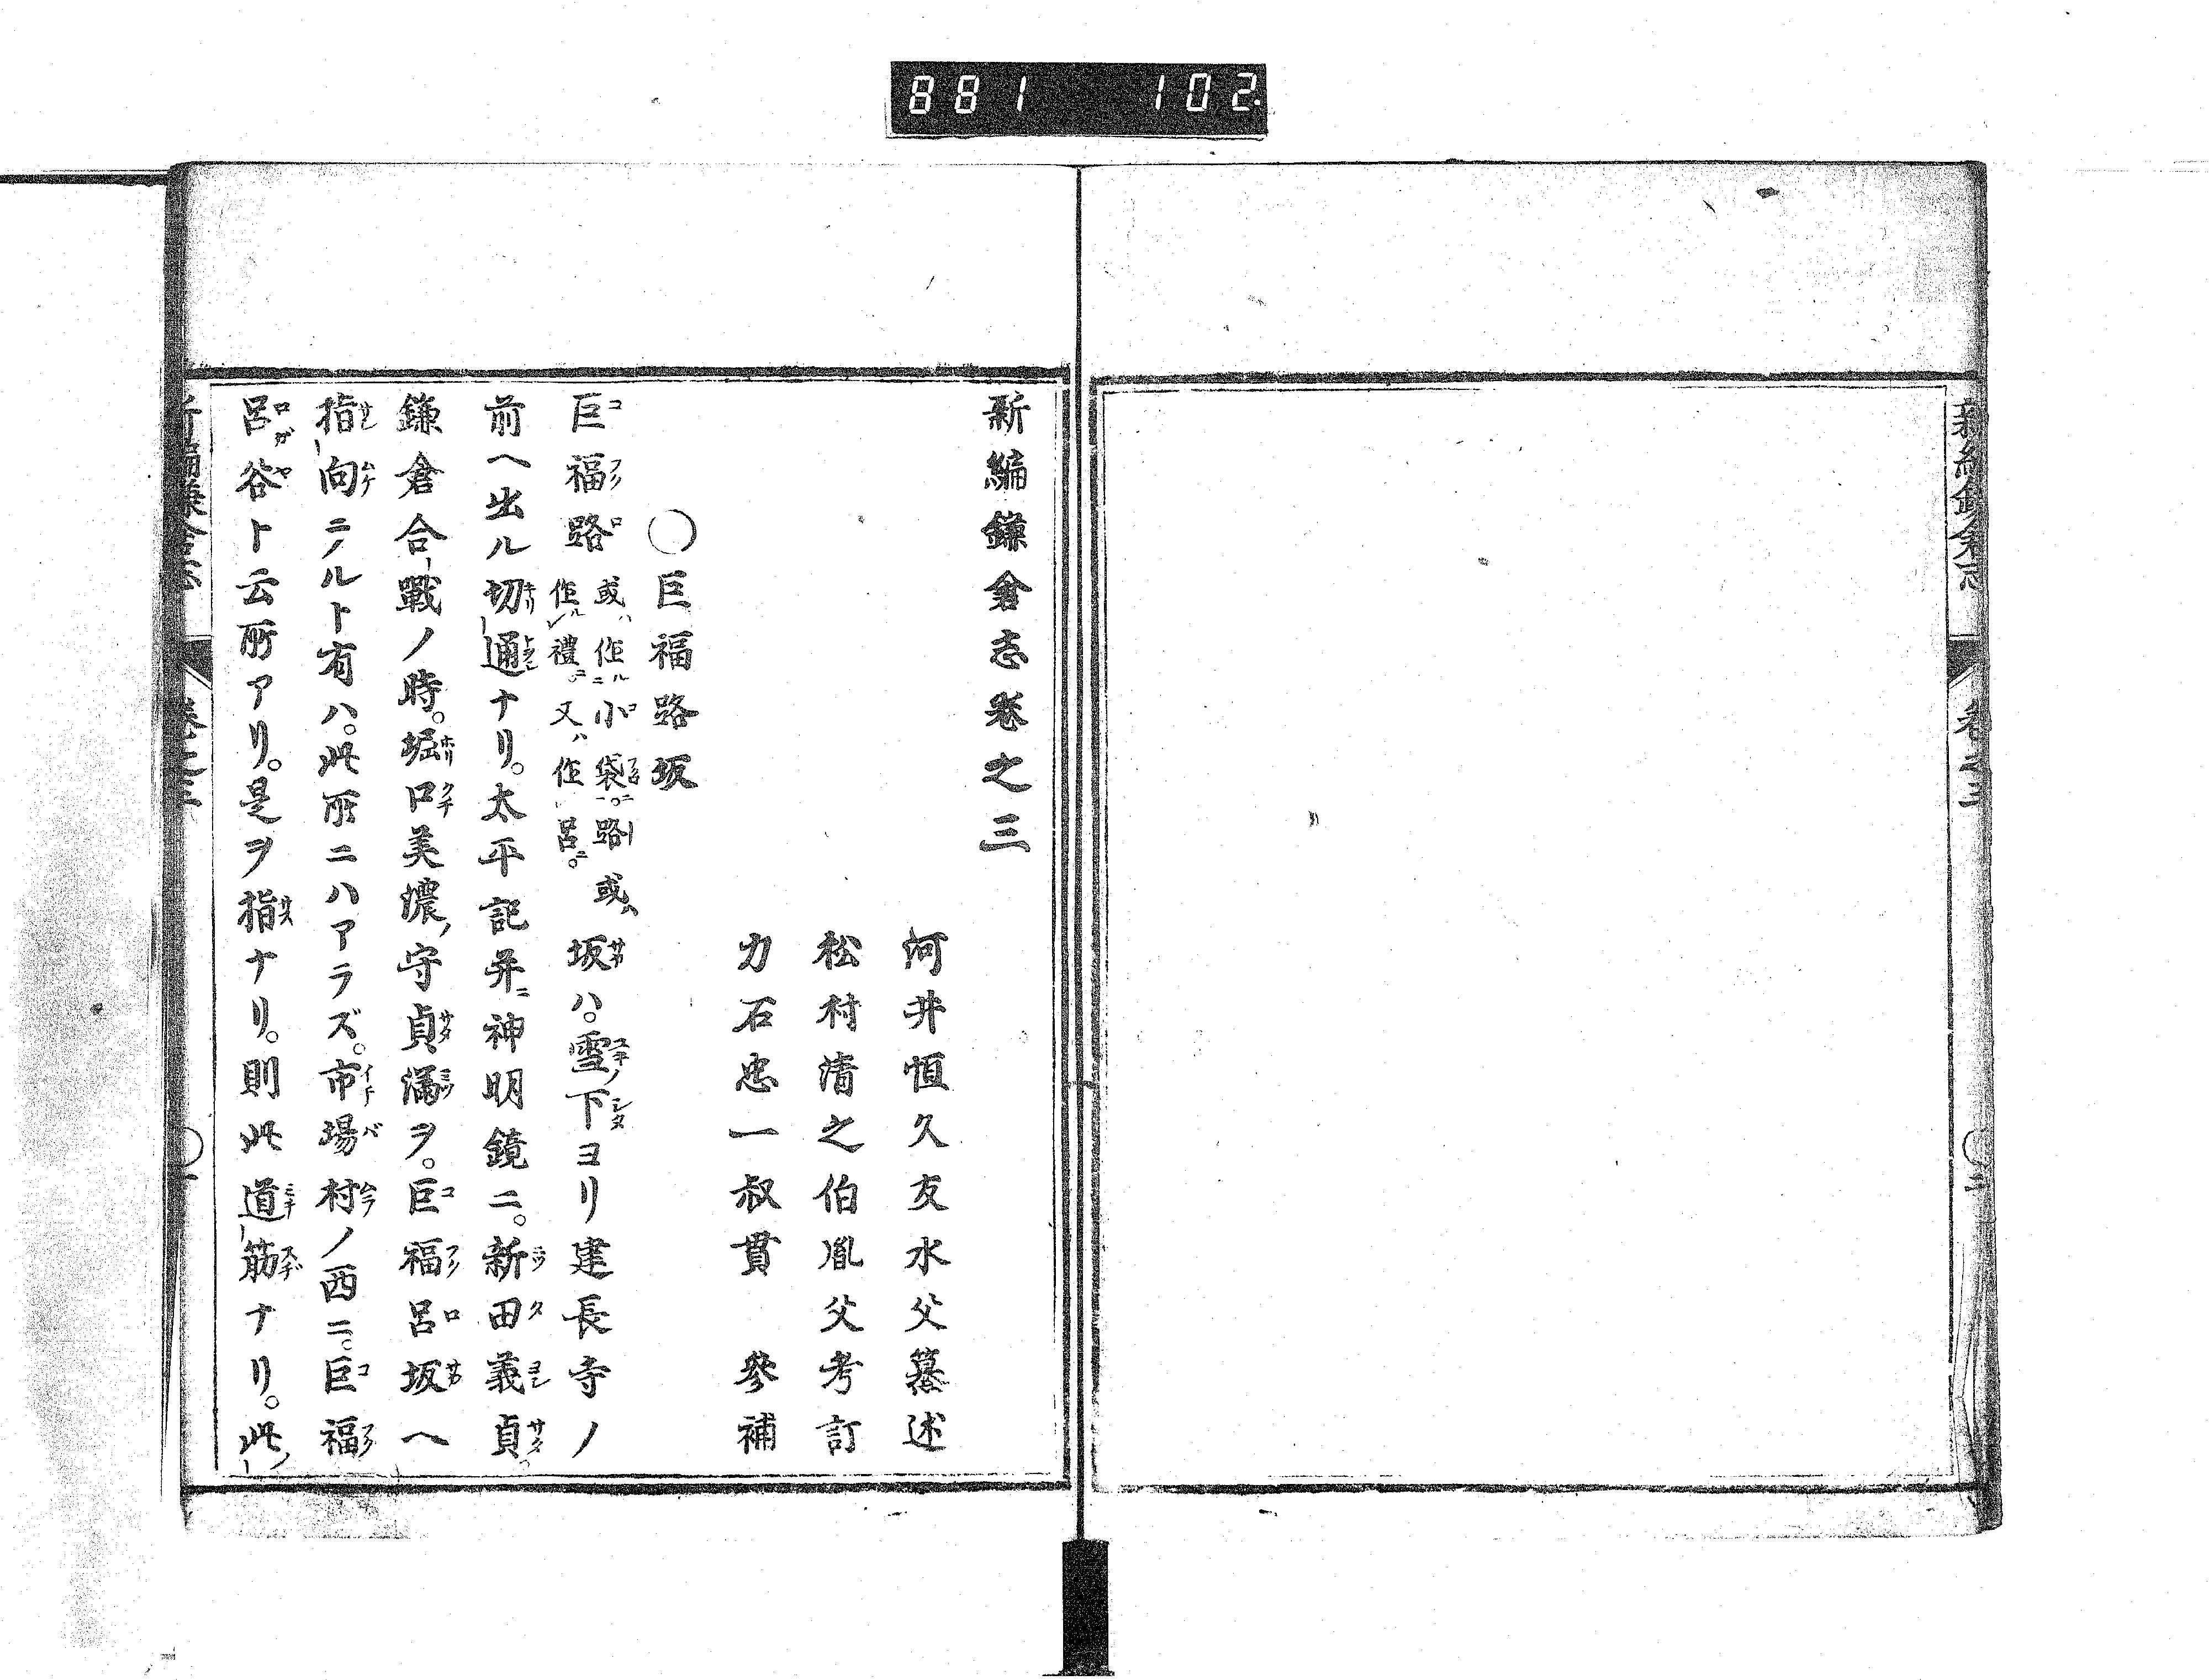 881 102.
新編鎌倉志卷之三
河井恒久友水父纂述
松村清之伯胤父考訂
力石忠一叔貫 參補
○巨福路坂
巨福路或ハ作ル小袋ニ路或ハ作ル禮ニ又ハ作呂ニ坂ハ。雪ノ下ヨリ建長寺ノ
前ヘ出ル切通ナリ。太平記并ニ神明鏡ニ。新田義貞。
鎌倉合戰ノ時。堀口美濃ノ守貞滿ヲ。巨福呂坂ヘ
指向ラルト有ハ。此所ニハアラズ。市場村ノ西ニ。巨福
呂谷ト云所アリ。是ヲ指ナリ。則此道筋ナリ。此ノ
新編鎌倉志 卷之三 ○一